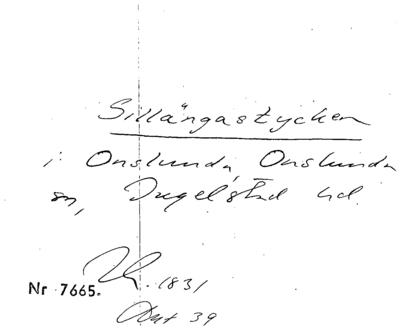 Sillängastycken
i Onslunda, Onslunda
sn, Ingelstad hd.
1831
Nr 7665.
Akt 39